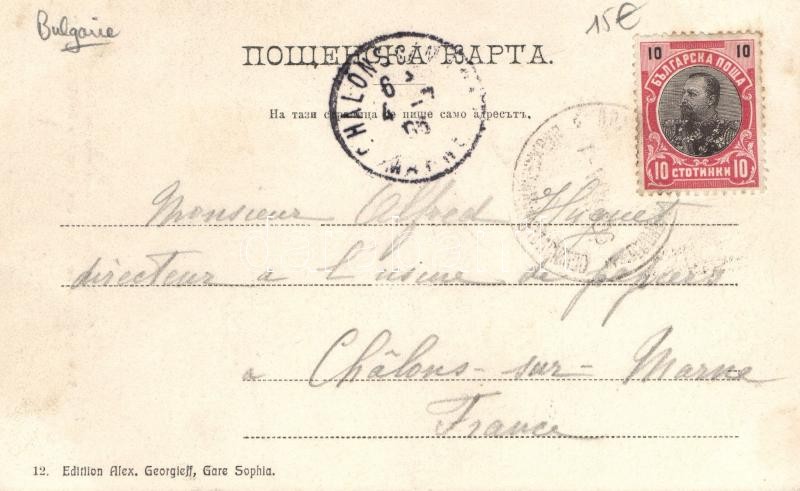 Bulgarie
15€
ПОЩЕНСКА КАРТА.
На тази страница се пише само адресътъ.
CHALONS
MARNE
10 10
БЪЛГАРСКА ПОЩА
10 СТОТИНКИ 10
Monsieur Alfred Huguet
directeur a l'usine de papiers
a Châlons-sur-Marne
France
12. Edition Alex. Georgieff, Gare Sophia.